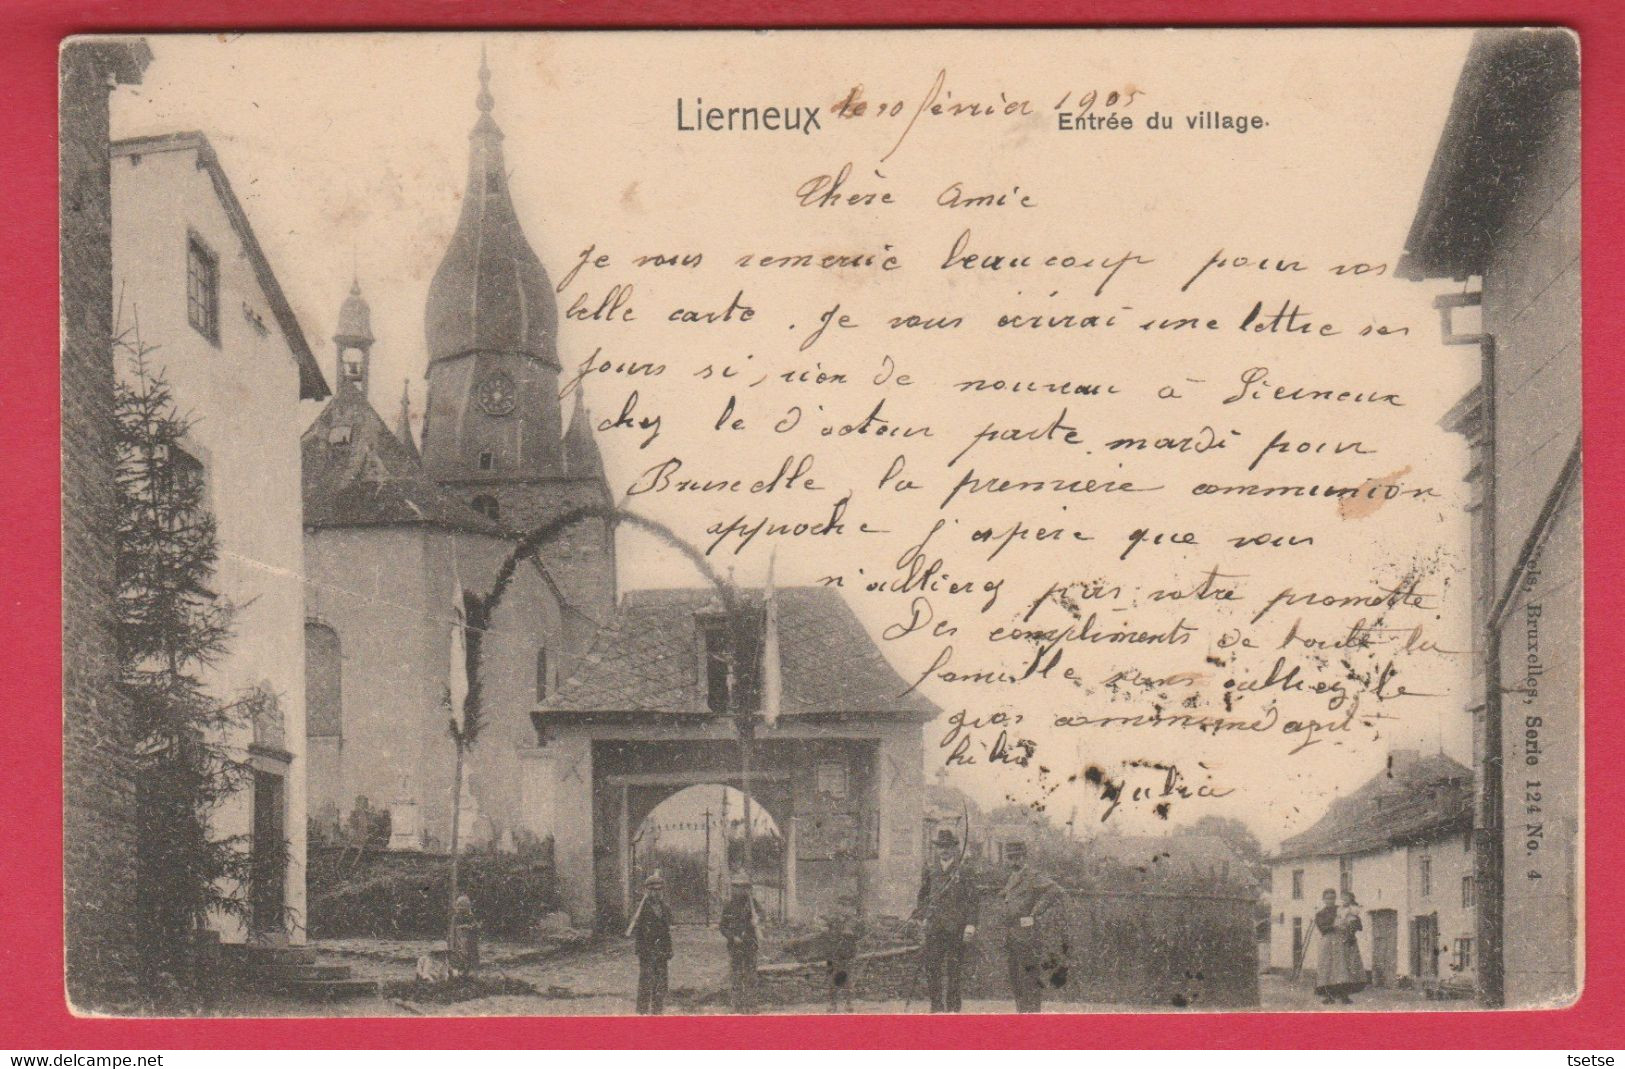 Lierneux le 10 février 1905
Entrée du village.
Chère Amie
Je vous remercie beaucoup pour vos
belle carte. Je vous écrirai une lettre ses
jours si, rien de nouveau à Lierneux
chez le d'octeur parte mardi pour
Bruxelle, la première communion
approche j'espère que vous
n'oublierez pas votre promette
Des compliments de toute la
famille sans oublier le
gros
Julia
els, Bruxelles, Serie 124 No. 4
delcampe.net
tsetse